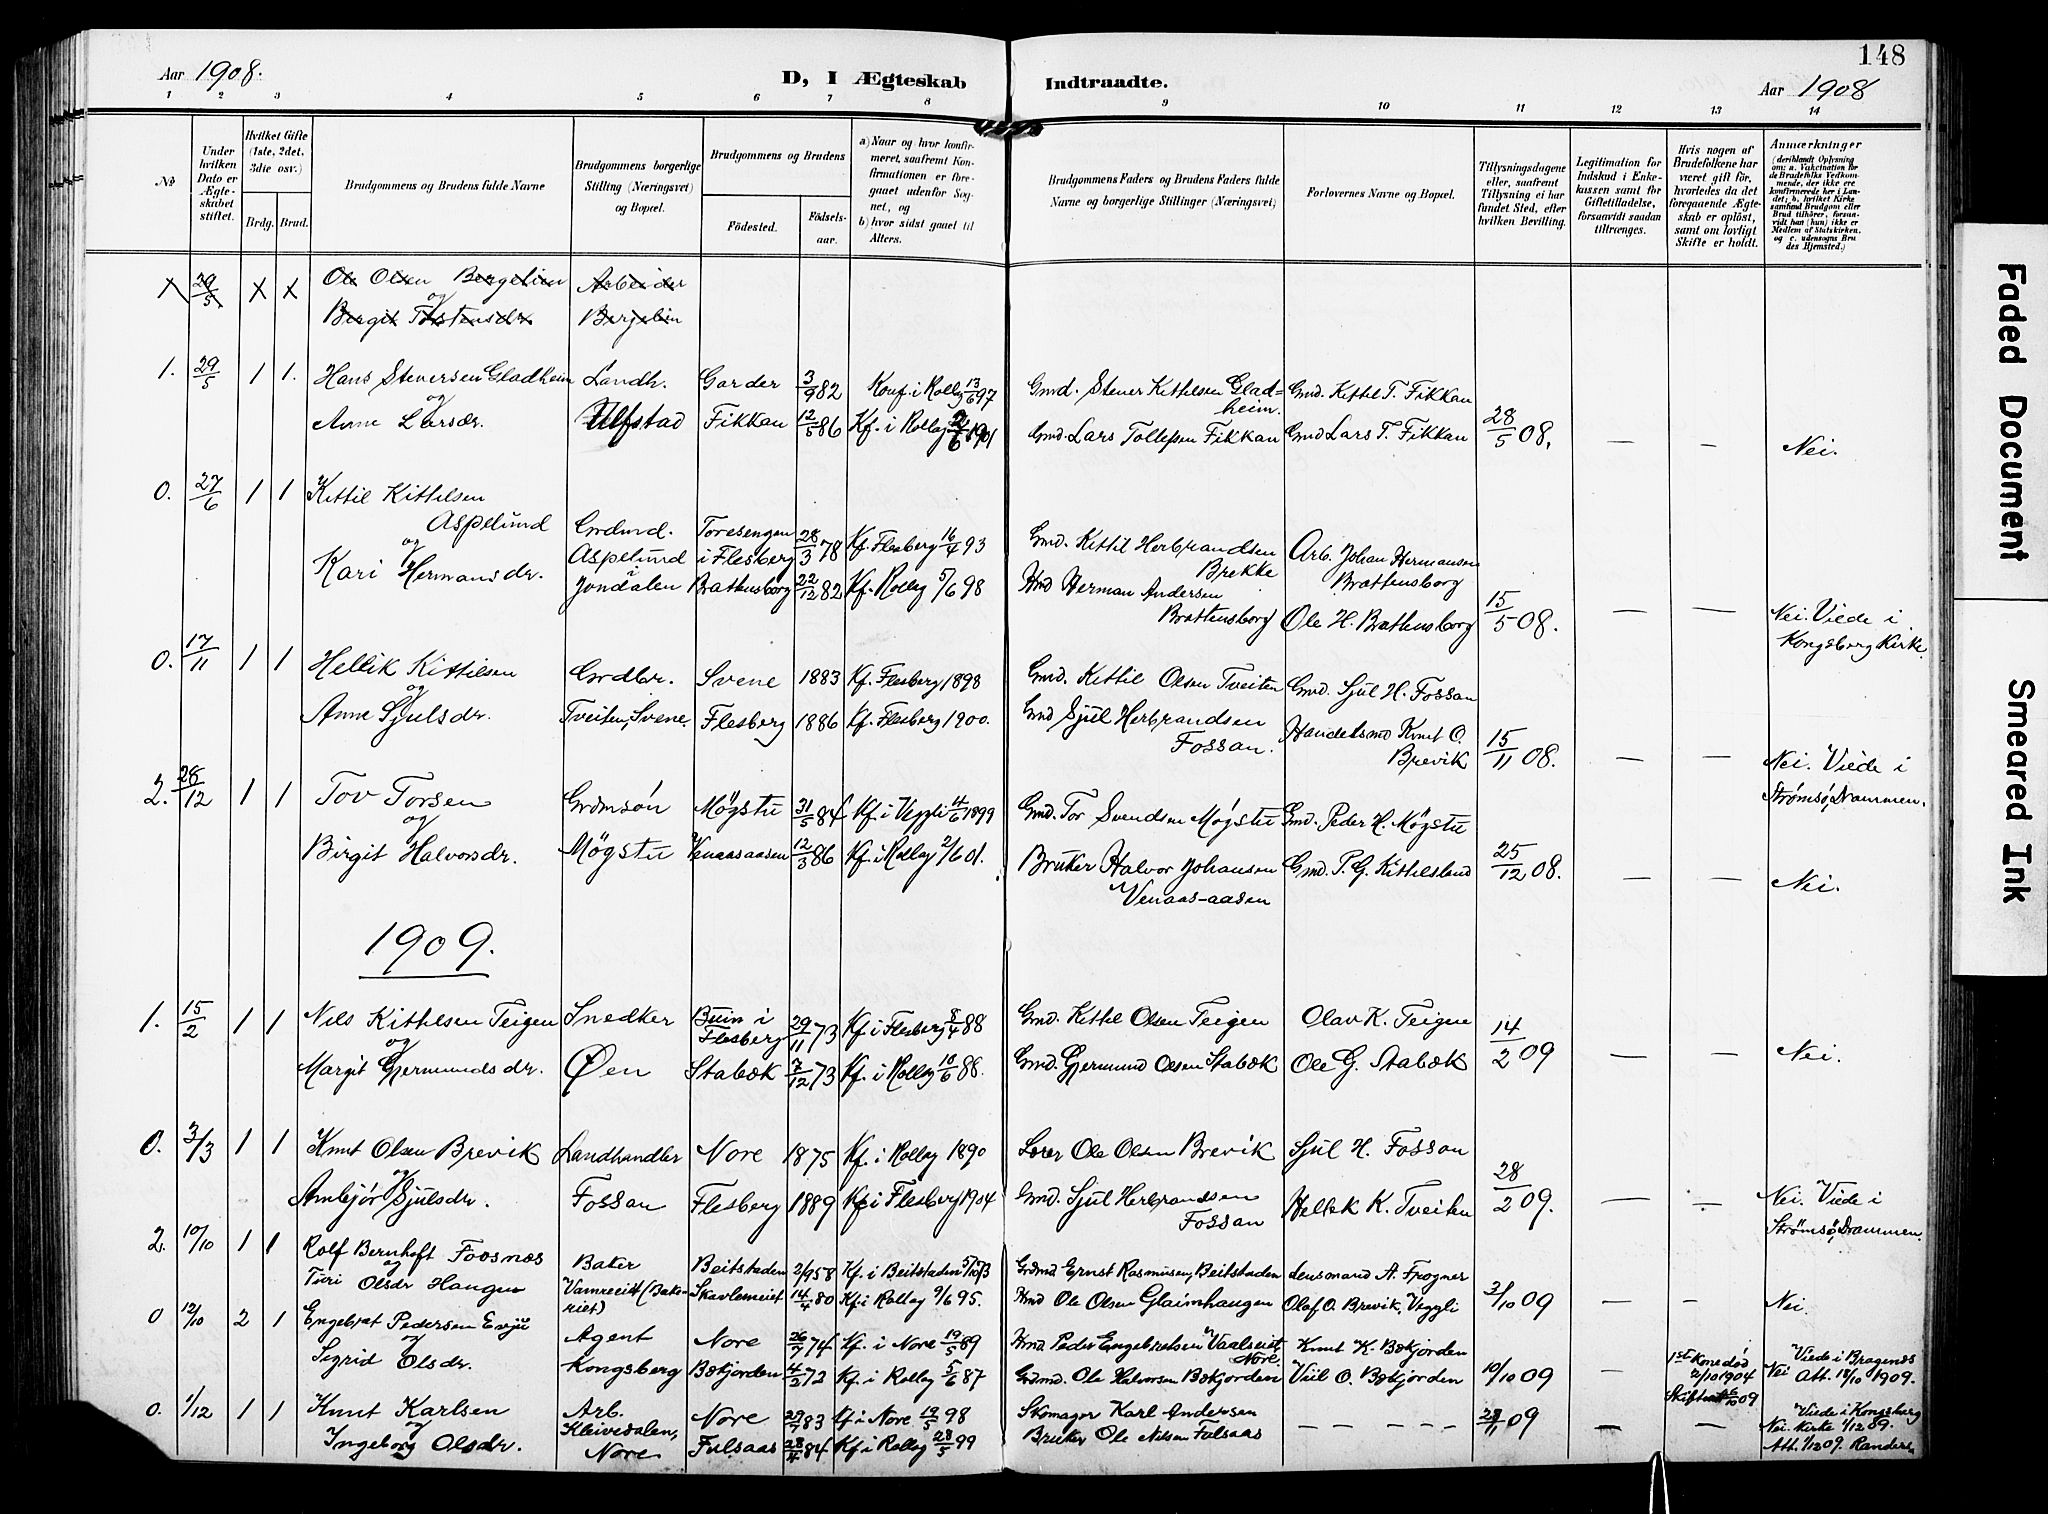 148
Aar 1908.
D, I Ægteskab
Indtraadte.
Aar 1908
1 2 3 4 5 6 7 8 9 10 11 12 13 14
№
Under hvilken Dato er Ægteskabet stiftet.
Hvilket Gifte (1ste, 2det, 3die osv.)
Brdg. Brud.
Brudgommens og Brudens fulde Navne
Brudgommens borgerlige Stilling (Næringsvei) og Bopæl.
Brudgommens og Brudens
Fødested.
Fødselsaar.
a) Naar og hvor konfirmeret, saafremt Konfirmationen er foregaaet udenfor Sognet, og
b) hvor sidst gaaet til Alters.
Brudgommens Faders og Brudens Faders fulde Navne og borgerlige Stillinger (Næringsvei)
Forlovernes Navne og Bopæl.
Tillysningsdagene eller, saafremt Tillysning ei har fundet Sted, efter hvilken Bevilling.
Legitimation for Indskud i Enkekassen samt for Giftetilladelse, forsaavidt saadan tiltrænges.
Hvis nogen af Brudefolkene har været gift før, hvorledes da det foregaaende Ægteskab er opløst, samt om lovligt Skifte er holdt.
Anmærkninger
(deriblandt Oplysning om: a. Vaccination for de Brudefolks Vedkommende, der ikke ere konfirmerede her i Landet; b. hvilket Kirkesamfund Brudgom eller Brud tilhører, forsaavidt han (hun) ikke er Medlem af Statskirken, og c. udensogns Brudes Hjemsted.)
29/5 Ole Olsen Bergelien Arbeider
og
Birgit Torstensdr Bergelien
1. 29/5 1 1. Hans Steversen Gladheim Landh. Garder 3/9 82 Konf. i Rollag 13/6 97 Gmd. Stener Kittilsen Gladheim. Gmd. Kittil T. Fikkan
og
Anne Larsdr. Ulfstad Fikkan 12/5 86 Kf. i Rollag 2/6 1901 Gmd. Lars Tollefsen Fikkan Gmd Lars T. Fikkan 28/5 08. — — Nei.
0. 27/6 1 1 Kittil Kittilsen
Aspelund Grdmd. Toresengen 28/3 78 Kf. Flesberg 16/4 93 Gmd. Kittil Herbrandsen Brekke Arb. Johan Hermansen Brattensborg
og Aspelund i Flesberg
Kari Hermansdr. i Jondalen Brattensborg 22/12 82 Kf. Rollag 5/6 98 Hmd Herman Andersen Brattensborg Ole H. Brattensborg 15/5 08. — — Nei. Viede i Kongsberg Kirke.
0. 17/11 1 1 Hellik Kittilsen Grdbr. Svene 1883 Kf. Flesberg 1898 Gmd. Kittil Olsen Tveiten Gmd. Sjul H. Fossan
og
Anne Sjulsdr. Tveiten, Svene. Flesberg 1886 Kf. Flesberg 1900. Gmd Sjul Herbrandsen Fossan. Handelsmd Knut O. Brevik 15/11 08. — — Nei. Viede i Strømsø, Drammen.
2. 28/12 1 1 Tov Torsen Grdmsøn Møgstu 31/5 84 Kf. i Veggli 11/6 1899 Gmd. Tor Svendsen Møgstu Gmd. Peder H. Møgstu
og
Birgit Halvorsdr. Møgstu Venaasaasen 12/3 86 Kf. i Rollag 2/6 01. Bruker Halvor Johansen Venaas-aasen Gmd. P. G. Kittilsland 25/12 08. — — Nei.
1909.
1. 15/2 1 1 Nils Kittilsen Teigen Snedker Buin i Flesberg 29/11 73 Kf. i Flesberg 8/4 88 Gmd. Kittil Olsen Teigen Olav K. Teigen
og
Margit Gjermundsdr. Øen Stabæk 7/12 73 Kf. i Rollag 10/6 88. Gmd. Gjermund Olsen Stabæk Ole G. Stabæk 14/2 09 — — Nei.
0. 3/3 1 1 Knut Olsen Brevik Landhandler Nore 1875 Kf. i Rollag 1890 Lærer Ole Olsen Brevik Sjul H. Fossan
og
Ambjør Sjulsdr. Fossan Flesberg 1889 Kf i Flesberg 1904 Gmd. Sjul Herbrandsen Fossan Hellek K. Tveiten 28/2 09. — — Nei. Viede i Strømsø, Drammen.
2. 10/10 1 1 Rolf Bernhoft Foosnæs Baker Beitstaden 2/9 58 Kf. i Beitstaden Grdmd Ernst Rasmusen, Beitstaden Lensmand A. Frogner
og
Turi Olsdr Haugen Vamreeiet (Bakeriet) Skavlemeiet 14/4 80 Kf i Rollag 9/6 95. Hmd Ole Olsen Glaimhaugen Olaf O. Brevik, Veggli 3/10 09 — — Nei.
0 12/10 2 1 Engebret Pedersen Evju Agent Nore 26/7 74 Kf. i Nore 19/5 89 Hmd Peder Engebretsen Vaalseiet, Nore. Knut K. Bækjorden
og
Sigrid Olsdr. Kongsberg Bækjorden 4/2 72 Kf. i Rollag 5/6 87 Grdmd. Ole Halvorsen Bækjorden Viil O. Bækjorden 10/10 09 — 1ste Kone død 2/10 1904 Skiftet 6/10 09 Nei Viede i Bragenæs Att. 12/10 1909.
0. 1/12 1 1 Knut Karlsen Arb. Nore 29/7 83 Kf i Nore 19/5 98 Skomager Karl Andersen
og Kleivedalen,
Ingeborg Olsdr. Nore Fulsaas 28/4 84 Kf. i Rollag 28/5 99 Bruker Ole Nilsen Fulsaas – – – – – 09 — — Viede i Kongsberg Nei. Kirke 1/12 09. Att. 1/12 09. Randers
Faded Document
Smeared Ink